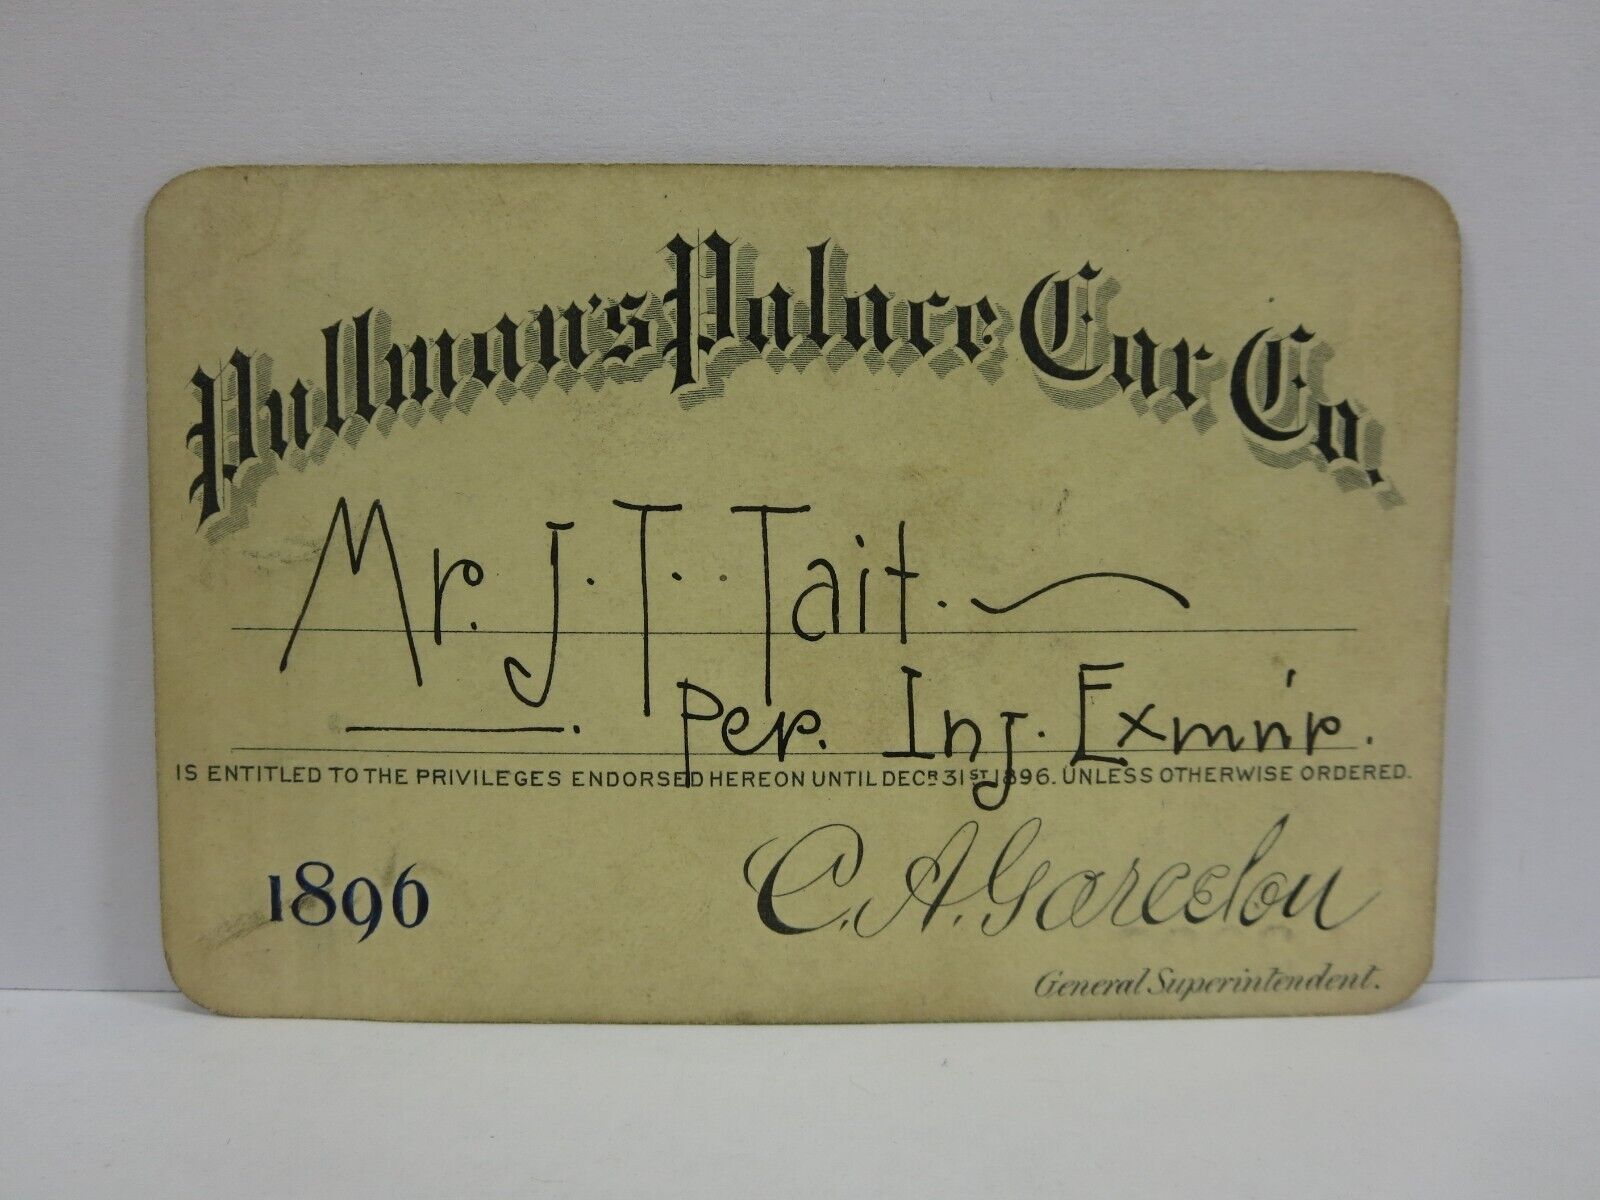 Pullman's Palace Car Co.
Mr. J. T. Tait.
Per. Inj. Exmn'r.
IS ENTITLED TO THE PRIVILEGES ENDORSED HEREON UNTIL DECR 31ST 1896. UNLESS OTHERWISE ORDERED.
1896
C. A. Garcelon
General Superintendent.